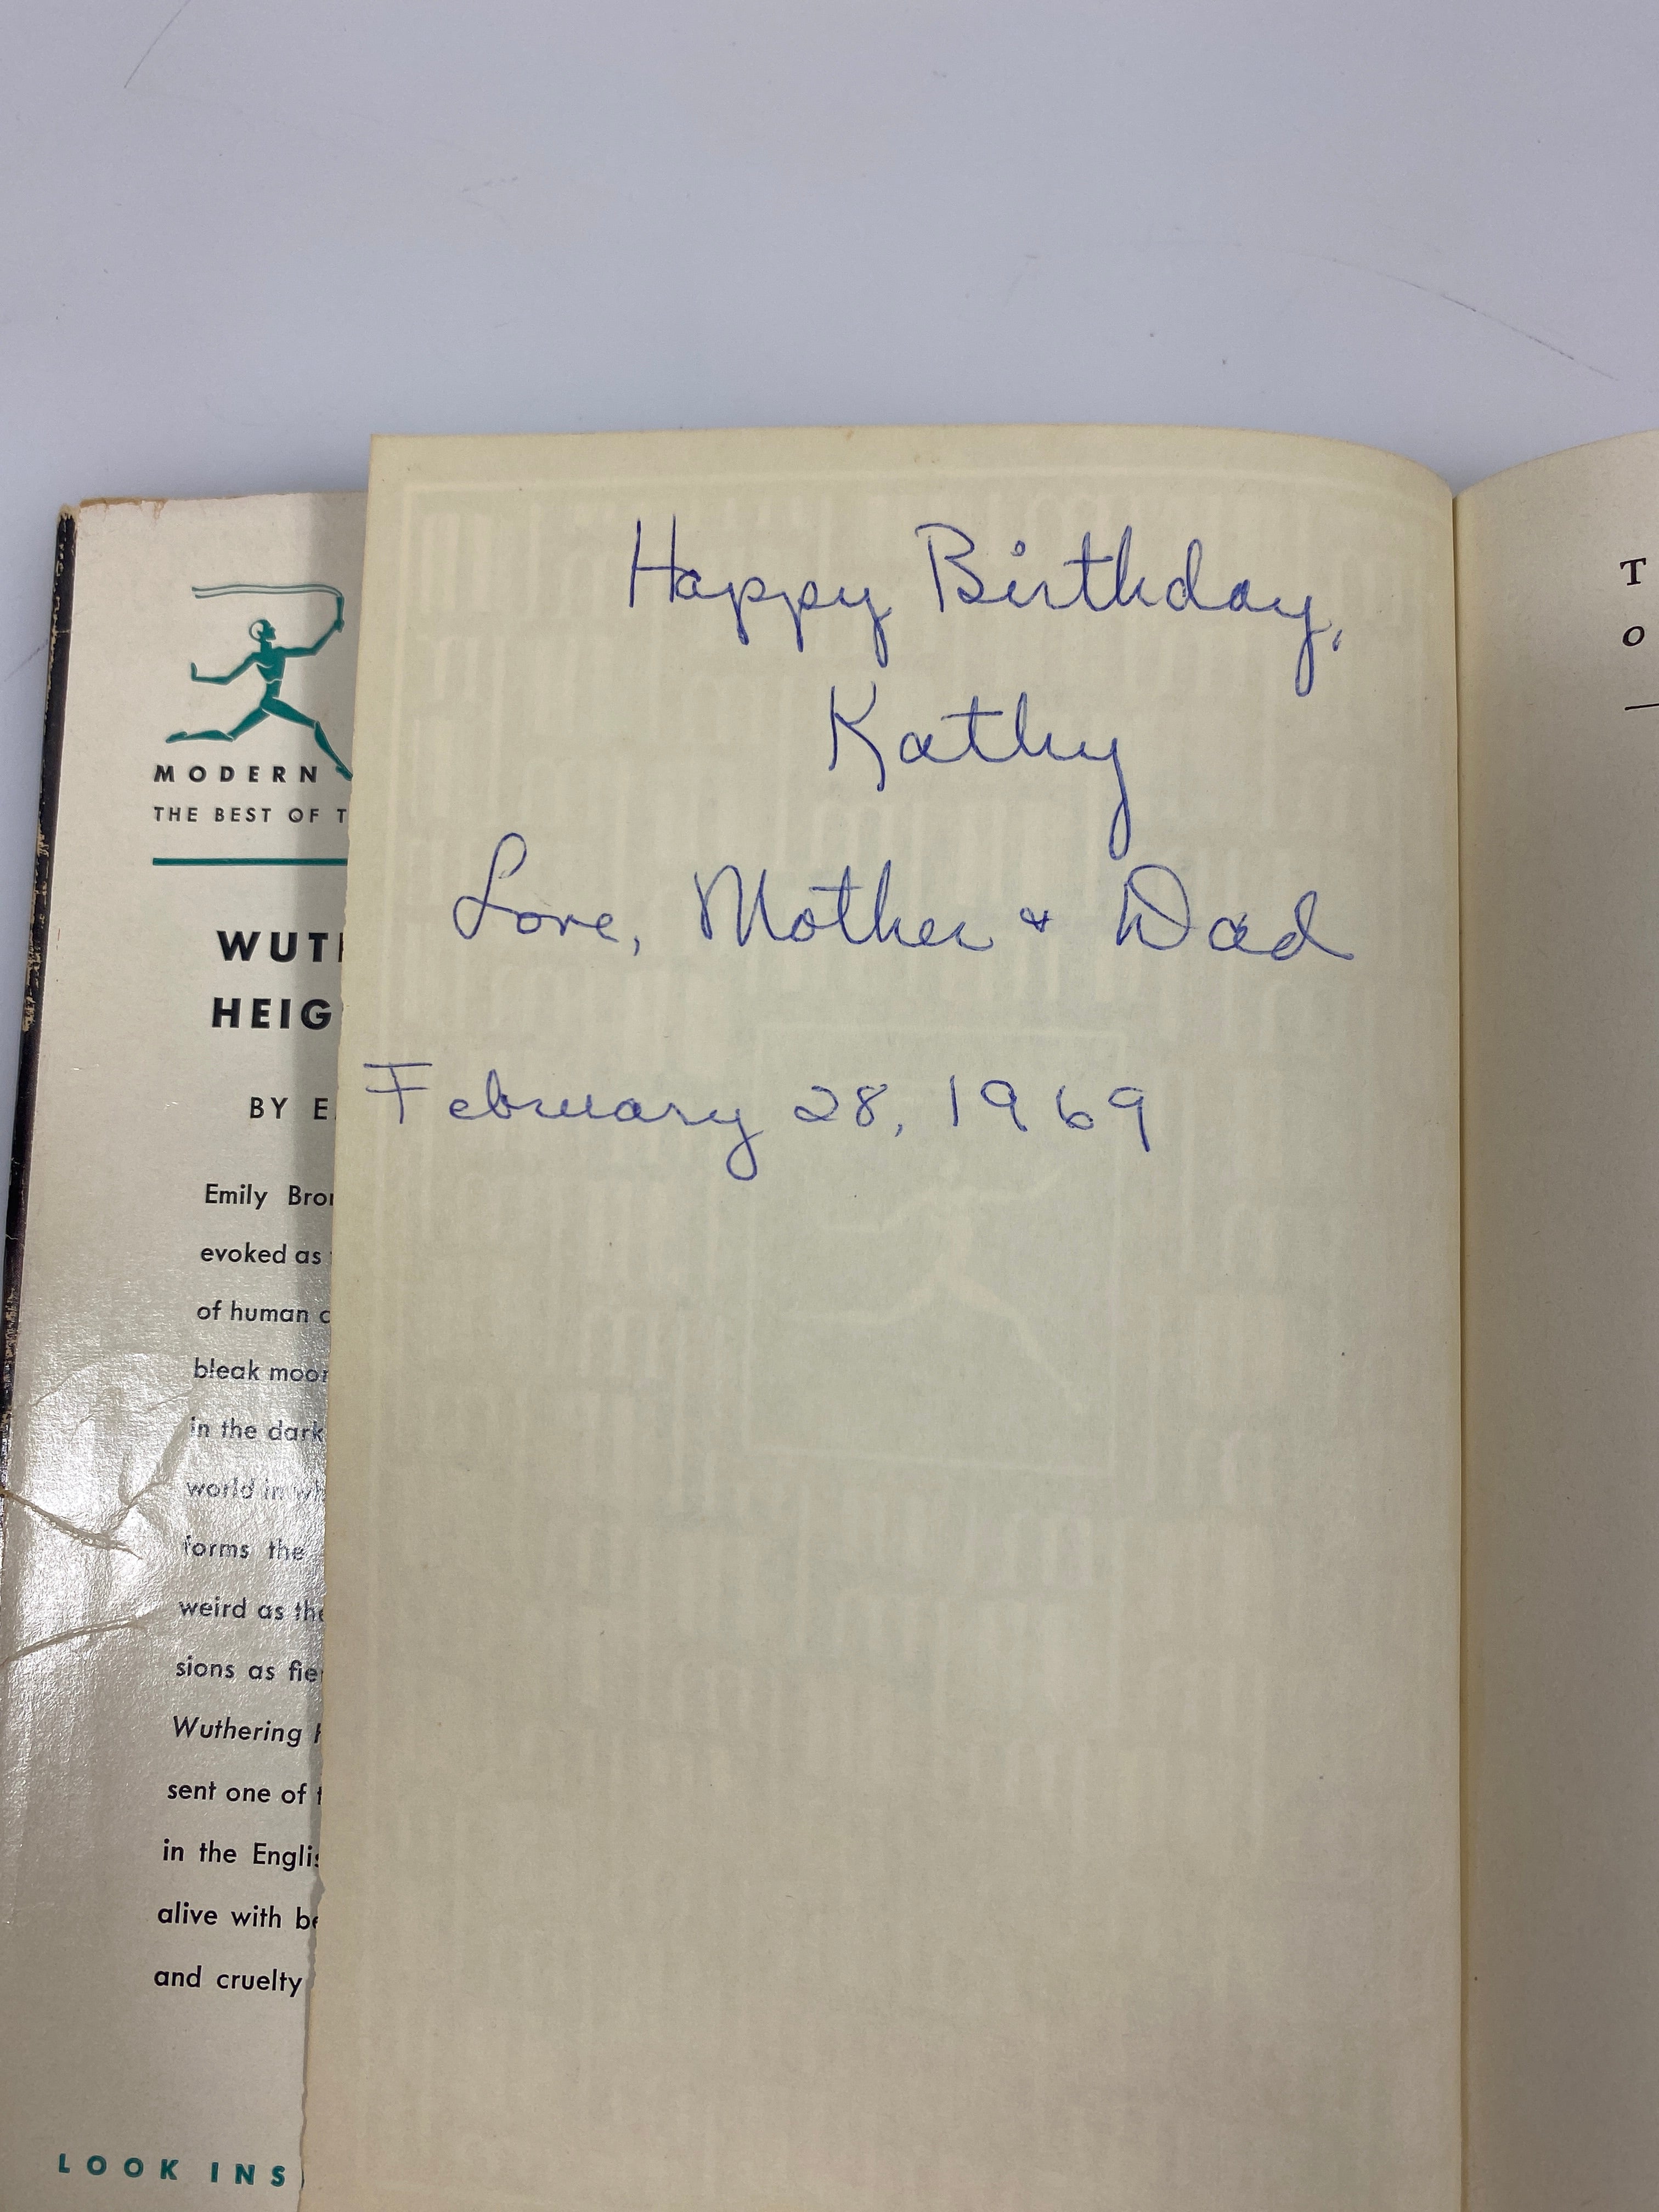 Happy Birthday,
Kathy
Love, Mother & Dad
February 28, 1969
MODERN
THE BEST OF T
WUTH
HEIG
BY E
Emily Bron
evoked as
of human c
bleak moor
in the dark
world in wh
forms the
weird as the
sions as fie
Wuthering H
sent one of t
in the Englis
alive with be
and cruelty
LOOK INS
T
O